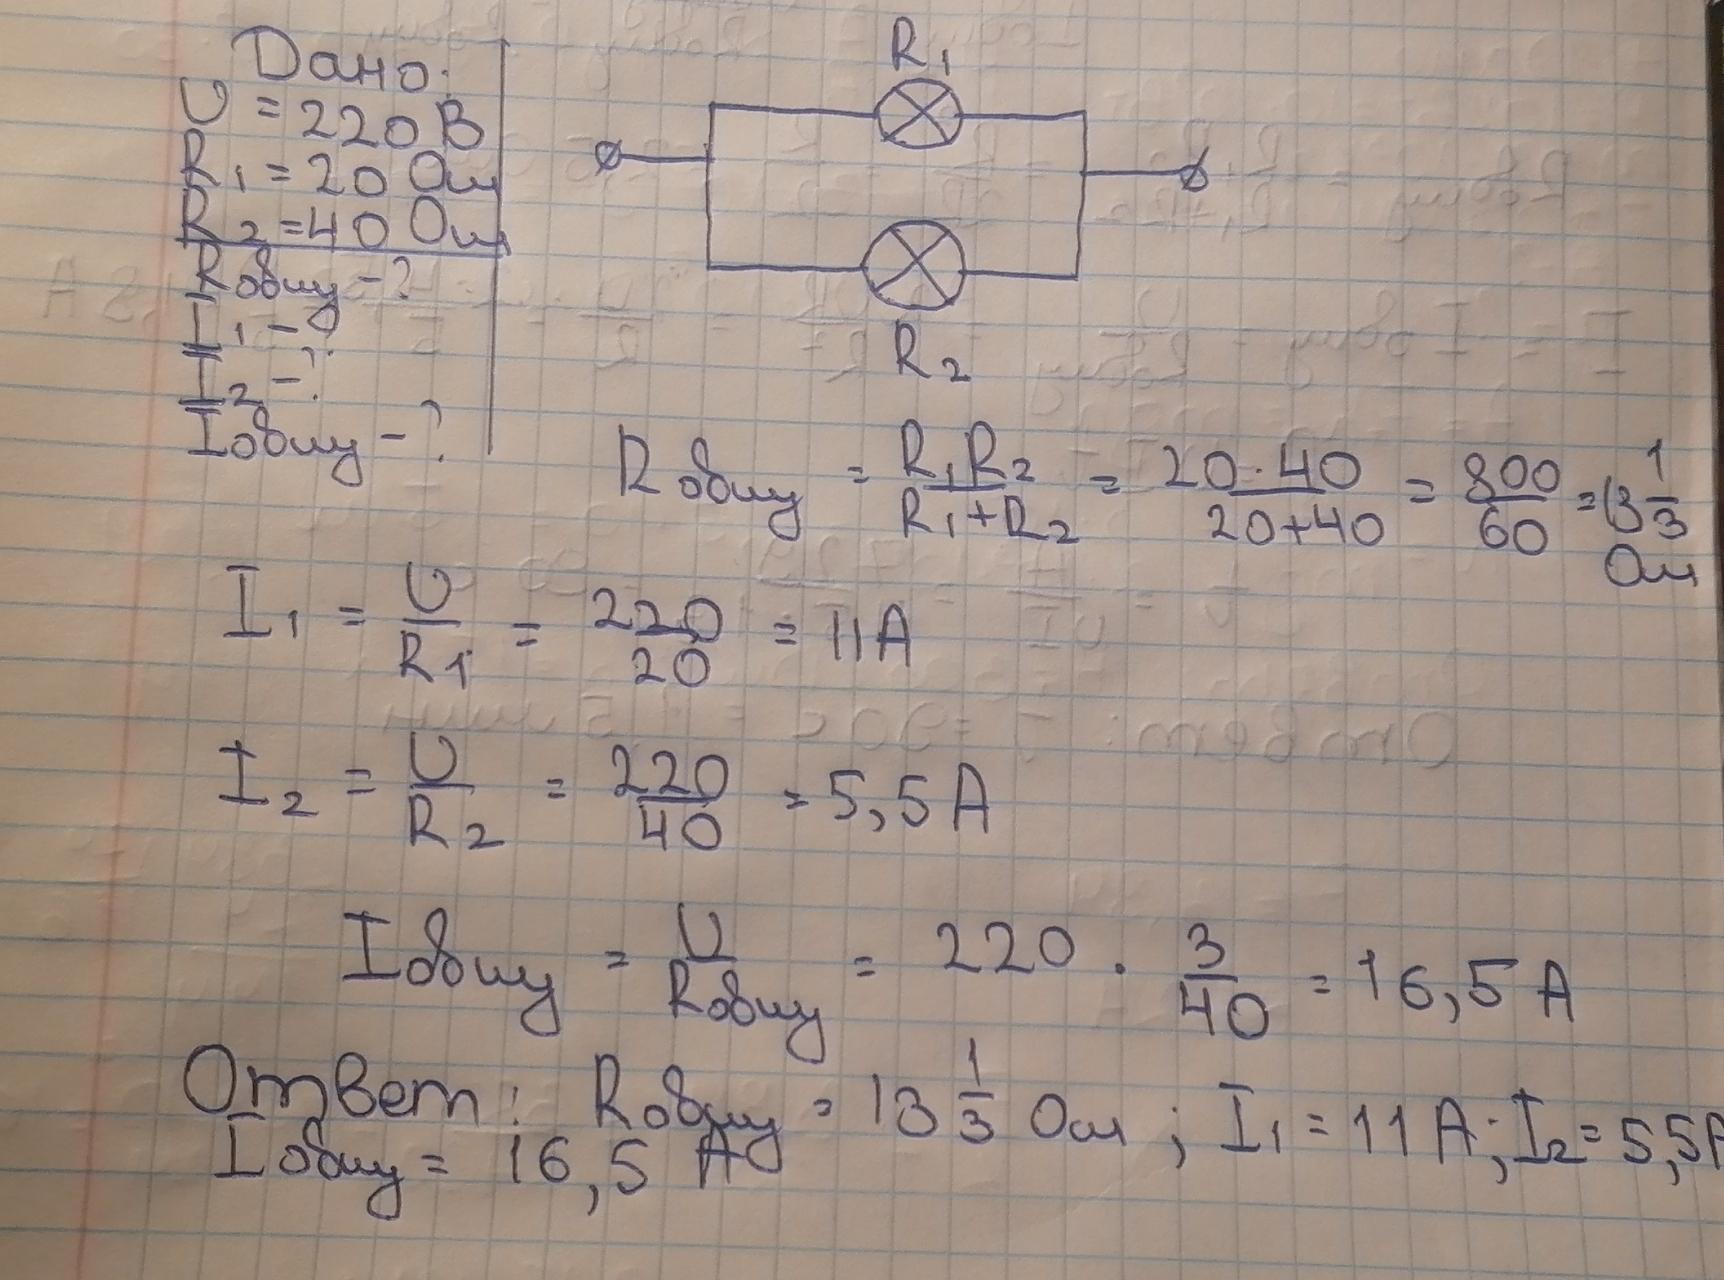 Дано:
U = 220 В
R₁ = 20 Ом
R₂ = 40 Ом
Rобщ - ?
I₁ - ?
I₂ - ?
Iобщ - ?
R₁
R₂
Rобщ = R₁R₂/(R₁+R₂) = 20·40/(20+40) = 800/60 = 13 1/3 Ом
I₁ = U/R₁ = 220/20 = 11 А
I₂ = U/R₂ = 220/40 = 5,5 А
Iобщ = U/Rобщ = 220 · 3/40 = 16,5 А
Ответ: Rобщ = 13 1/3 Ом ; I₁ = 11 А; I₂ = 5,5 А
Iобщ = 16,5 А